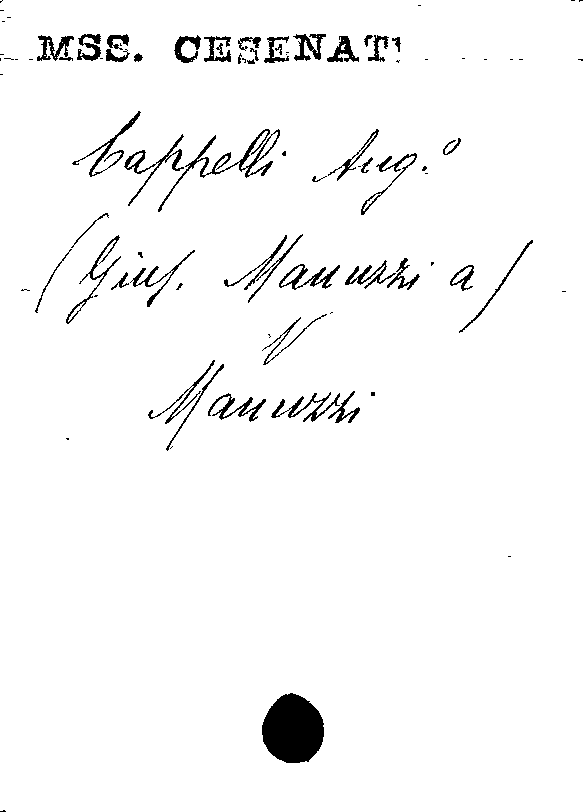 MSS. CESENATI
Cappelli Aug.º
(Gius. Manuzzi a)
V
Manuzzi